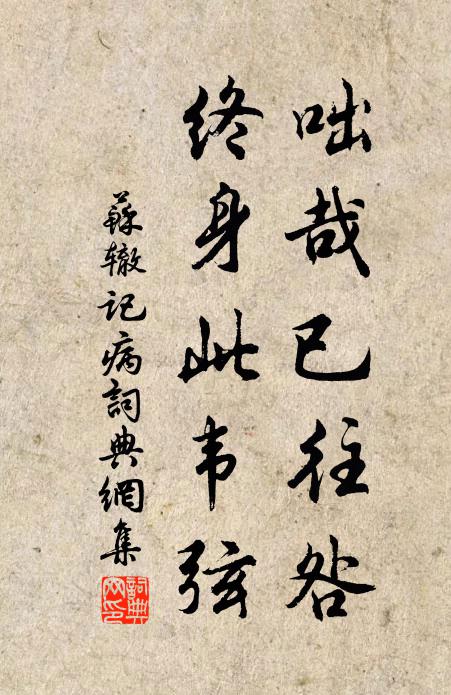 咄哉已往咎
终身此韦弦
蘇辙记病詞典網集
詞典网印